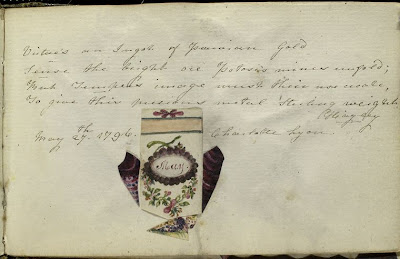 Virtue's an Ingot of Peruvian Gold
Sense the bright ore Potosi's mines unfold;
But Temper's image must their use create,
To give their precious metal sterling weight
May 27th 1796. Charlotte Lyon
Mary